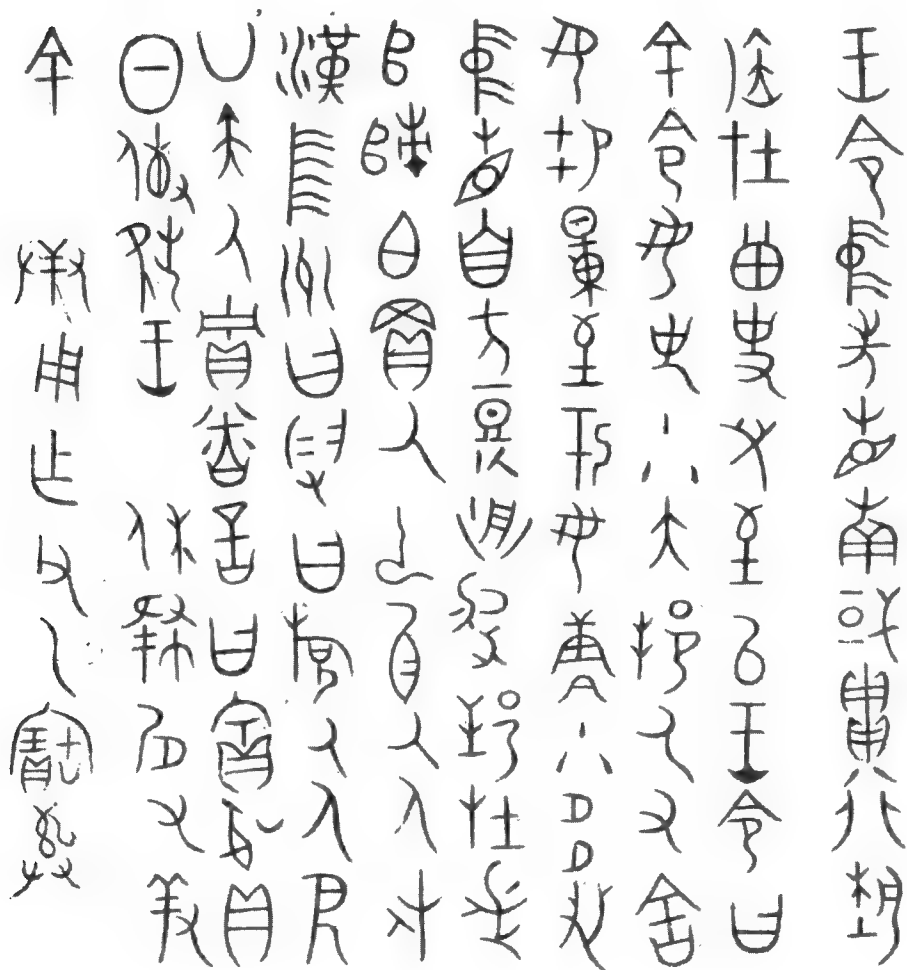 王令中先省南或貫行埶
应在曾史兒至以王令曰
余令女史小大邦厥又舍
女芻量至于女庸小多
中省自方鄧洀厥邦在鄂
𠂤次白買父以厥人戍
漢中州曰叚曰㫃厥人
廿夫厥賈粦言曰賓貝
日傳王休肆肩又羞
余用乍父乙寶彝